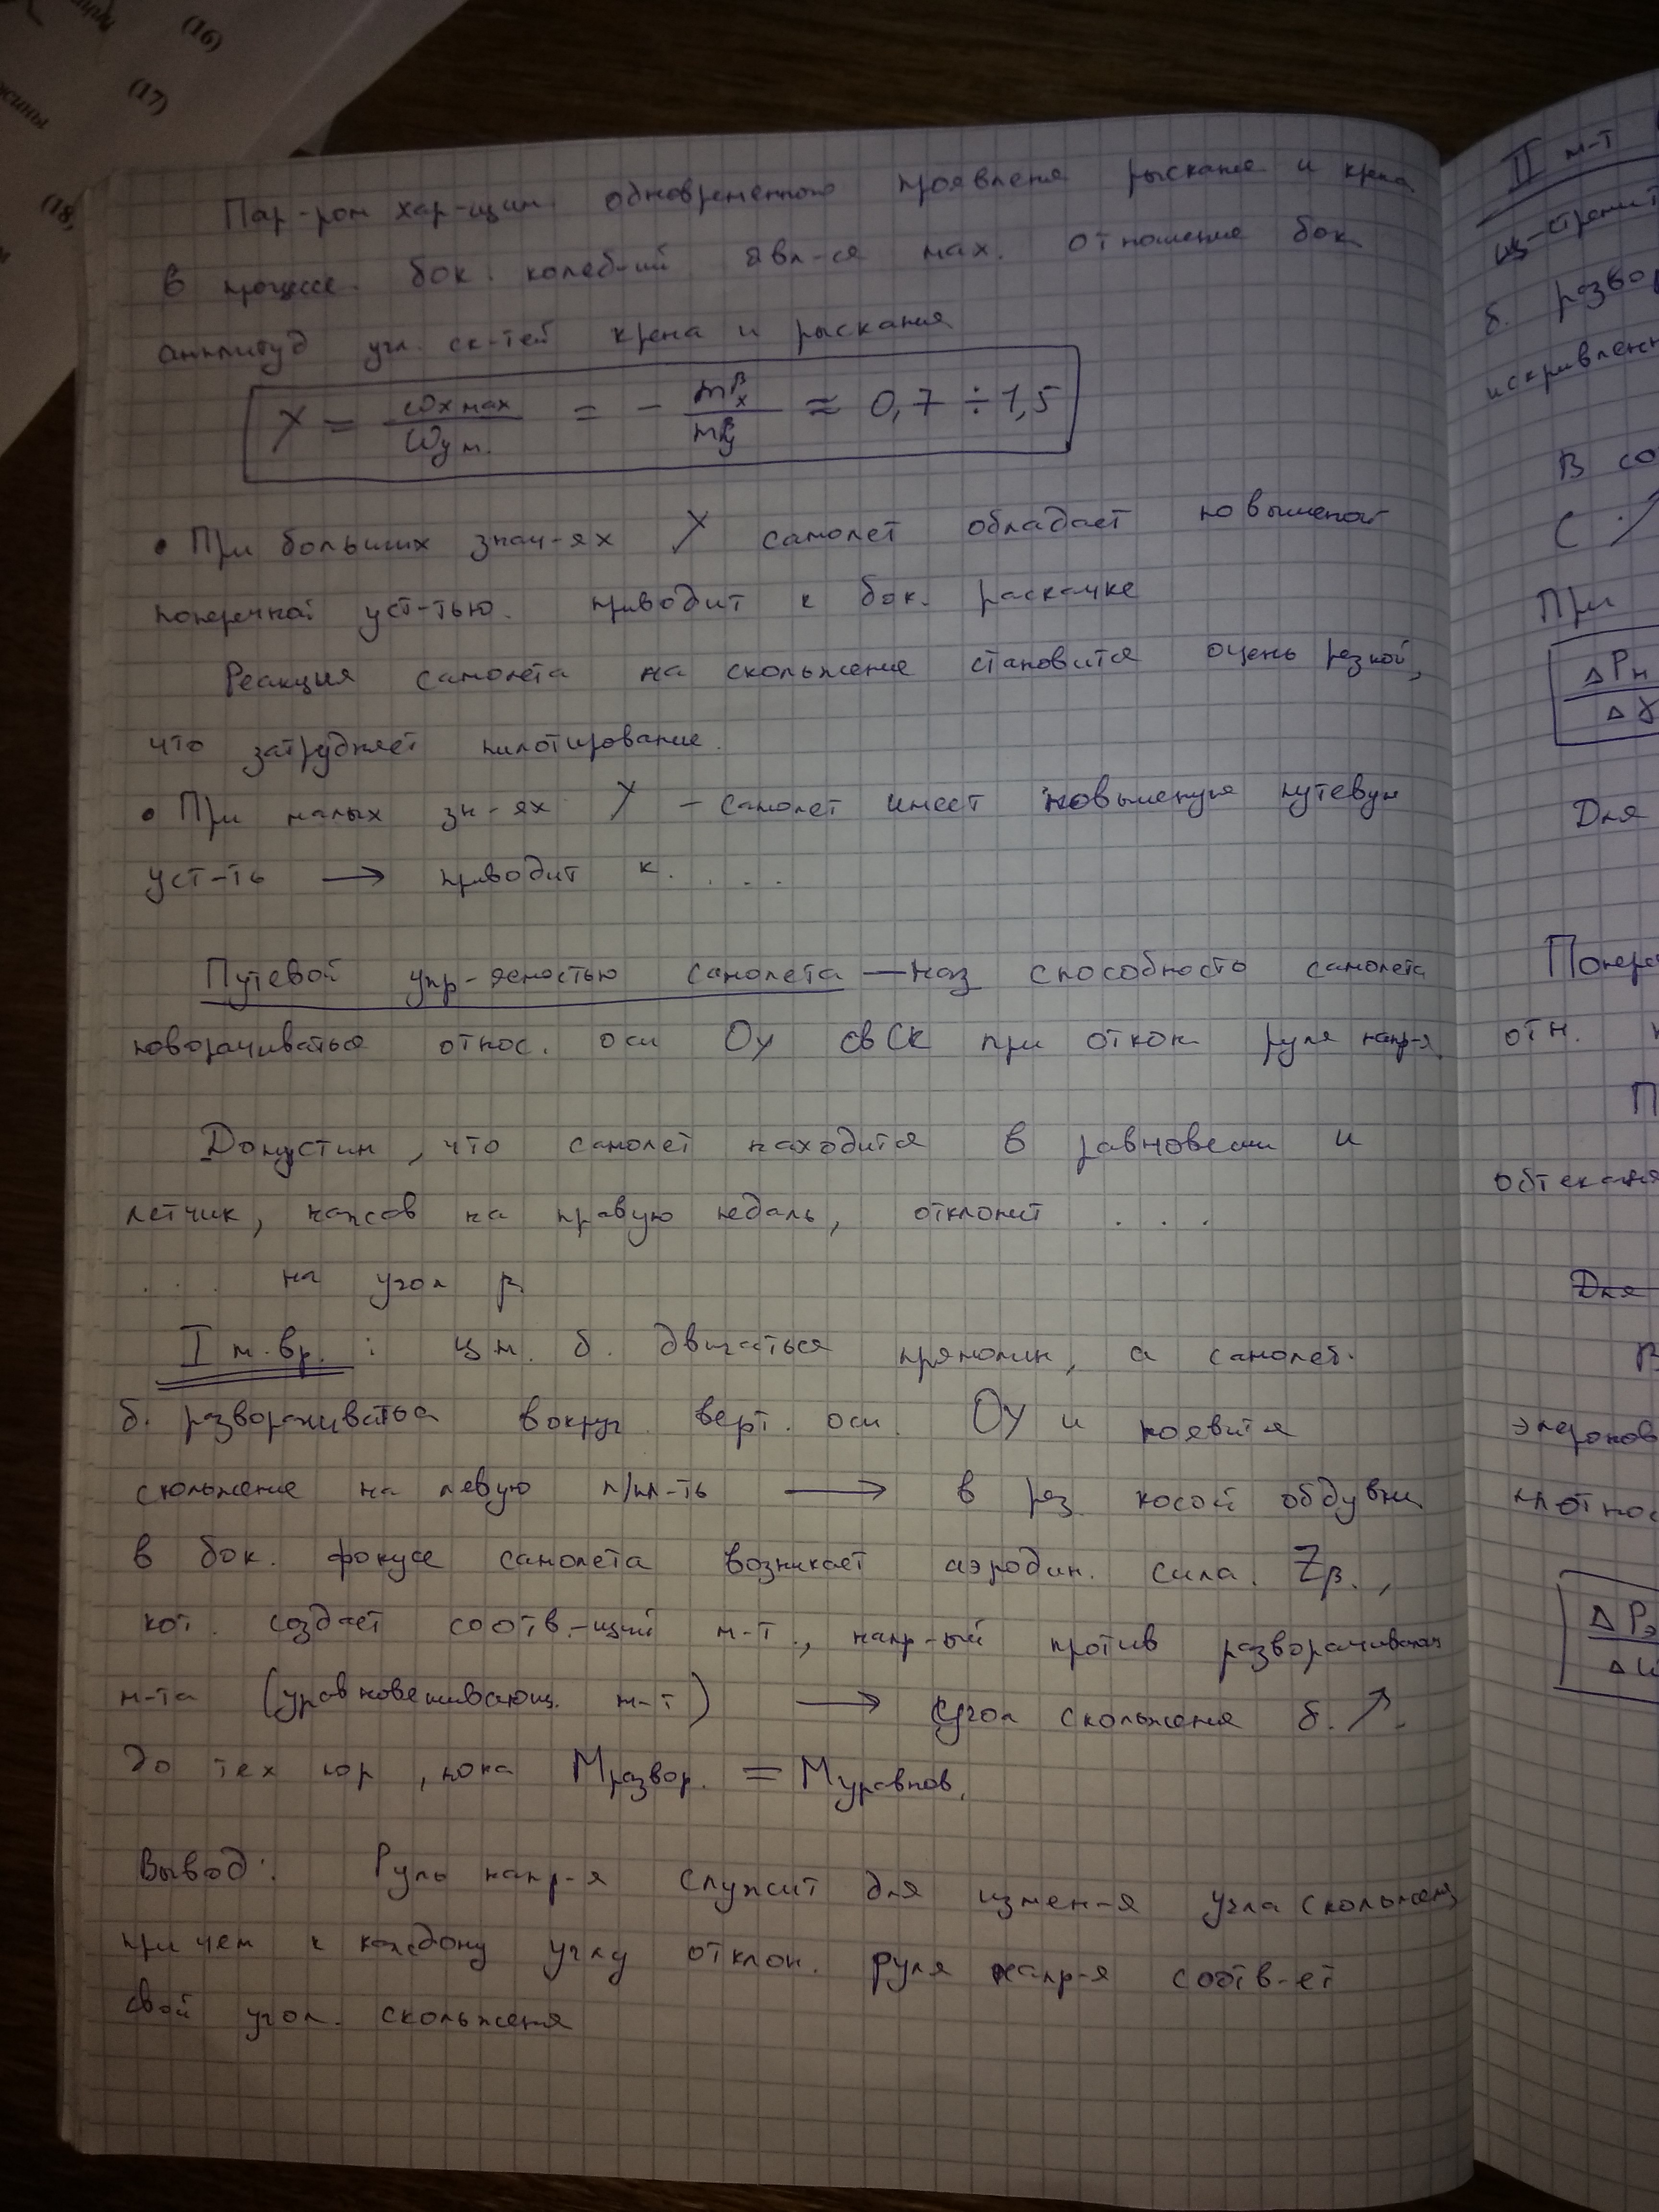 (16)
(17)
(18,
Пар-ром хар-щим одновременного проявления рыскания и крена
в процессе бок. колеб-ий явл-ся мах. отношение бок
амплитуд угл. ск-тей крена и рыскания
χ = ωx мах / ωy м. = - mxβ / myβ ≈ 0,7 ÷ 1,5
• При больших знач-ях χ самолет обладает повышеной
поперечной уст-тью. приводит к бок. раскачке
Реакция самолета на скольжение становится очень резкой,
что затрудняет пилотирование.
• При малых зн-ях χ - самолет имеет повышеную путевую
уст-ть → приводит к. . . .
Путевой упр-яемостью самолета — наз способность самолета
поворачиваться относ. оси Oy свСК при откл руля напр-я
Допустим, что самолет находится в равновесии и
летчик, нажав на правую педаль, отклонит . . .
. . . на угол β
I м. вр. : цм. б. двигаться прямолин, а самолет.
б. разворачиваться вокруг верт. оси OY и появится
скольжение на левую п/пл-ть → в рез косой обдувки
в бок. фокусе самолета возникает аэродин. сила. Zβ.,
кот. создает соотв.-щий м-т., напр-ый против разворачивающ
м-та (уравновешивающ. м-т) → угол скольжения б. ↗.
до тех пор, пока Mразвор. = Mуравнов.
Вывод: Руль напр-я служит для измен-я угла скольжения
причем к каждому углу отклон. руля напр-я соотв-ет
свой угол. скольжения
II м-т
б. развор
искривлен
В со
С ↗
При
ΔPн
Δγ
Для
Попере
отн.
П
обтекания
Для
В
элеронов
плотнос
ΔPэ
Δω